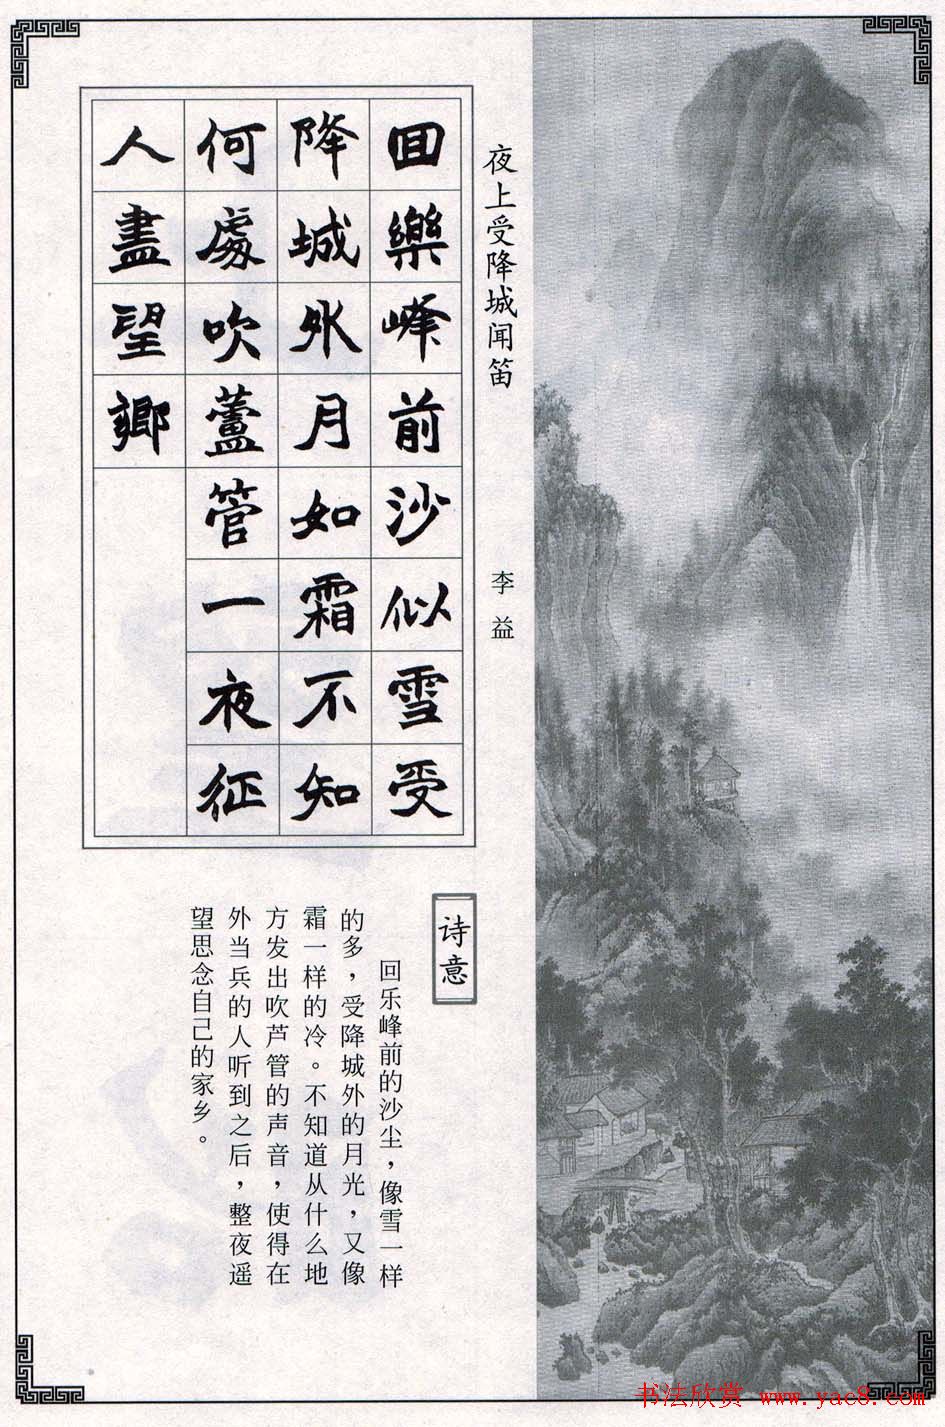 夜上受降城闻笛
李益
回樂峰前沙似雪受
降城外月如霜不知
何處吹蘆管一夜征
人盡望鄉
诗意
回乐峰前的沙尘，像雪一样
的多，受降城外的月光，又像
霜一样的冷。不知道从什么地
方发出吹芦管的声音，使得在
外当兵的人听到之后，整夜遥
望思念自己的家乡。
书法欣赏 www.yac8.com